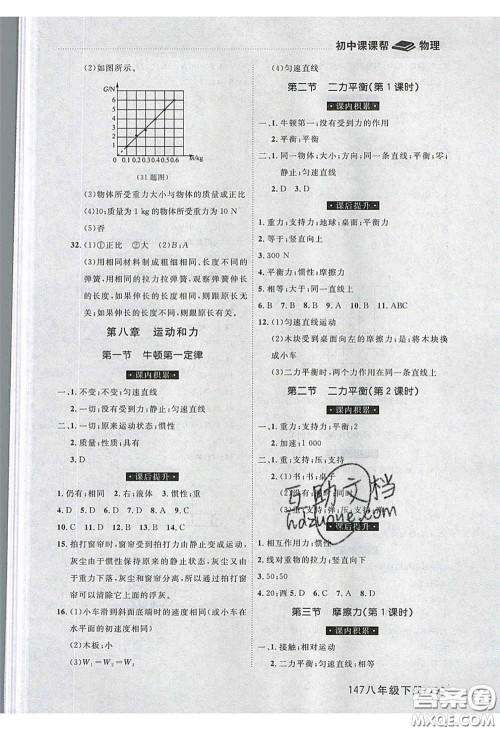 初中课课帮 物理
(2)如图所示。
G/N
6
5
4
3
2
1
0.1 0.2 0.3 0.4 0.5 0.6 m/kg
(31题图)
(3)物体所受重力大小与物体的质量成正比
(4)10;质量为1 kg的物体所受重力为10 N
(5)否
32. (1)①正比 ②大 (2)B;A
(3)用相同材料制成粗细相同、长度不同的
弹簧,用相同的拉力拉弹簧,观察弹簧伸长
的长度,如果伸长的长度不同,则与长度有
关;如果伸长的长度相同,则与长度无关。
第八章 运动和力
第一节 牛顿第一定律
课内积累
一、1. 不变;不变;匀速直线
2. 一切;没有受到力;静止;匀速直线
二、1. 一切;原来运动状态;惯性
2. 质量;质量;惯性
3. D
课后提升
1. 仍有;相同 2. 右;液体 3. 惯性;重
4. D 5. D 6. D 7. D 8. A 9. D
10. C 11. D 12. B 13. D 14. D
15. 拍打窗帘时,窗帘由静止变成运动,
灰尘由于惯性保持原来的静止状态,
灰尘与窗帘分离,从而达到通过拍打窗
帘可以使窗帘上的灰尘掉下来的目的。
16. (1)小车滑到斜面底端时的速度(或小车在
水平面的初速度)大小相同
(2)木板;小
(3)W₁=W₂=W₃
(4)匀速直线
第二节 二力平衡(第1课时)
课内积累
一、1. 牛顿第一;没有受到力的作用
2. 平衡;平衡
二、1. 同一物体;大小;方向;同一条直线;平衡
2. D 3. D
课后提升
1. 重力;支持力;地球;桌面;平衡力
2. 等于;竖直向上
3. 300 N
4. 平衡力;惯性;摩擦力
5. 相等;大于;同一直线上
6. B 7. B 8. D 9. A 10. A 11. ABC
12. (1)匀速直线运动
(2)木块受到桌面的摩擦力;是,将木块换
成小车
(3)平衡时,两个力作用在同一条直线上
第二节 二力平衡(第2课时)
课内积累
一、1. 重力;支持力;平衡力;2
2. 加速;1 000
二、1. 重;支持;压;支持
2. (1)书;书;桌子
3. D
课后提升
1. 相互作用力;惯性
2. 线对重物的拉力;竖直向下
3. 50;50
第三节 摩擦力(第1课时)
课内积累
一、1. 接触;相对运动
互助文档
hdzuoye.com
147八年级下册